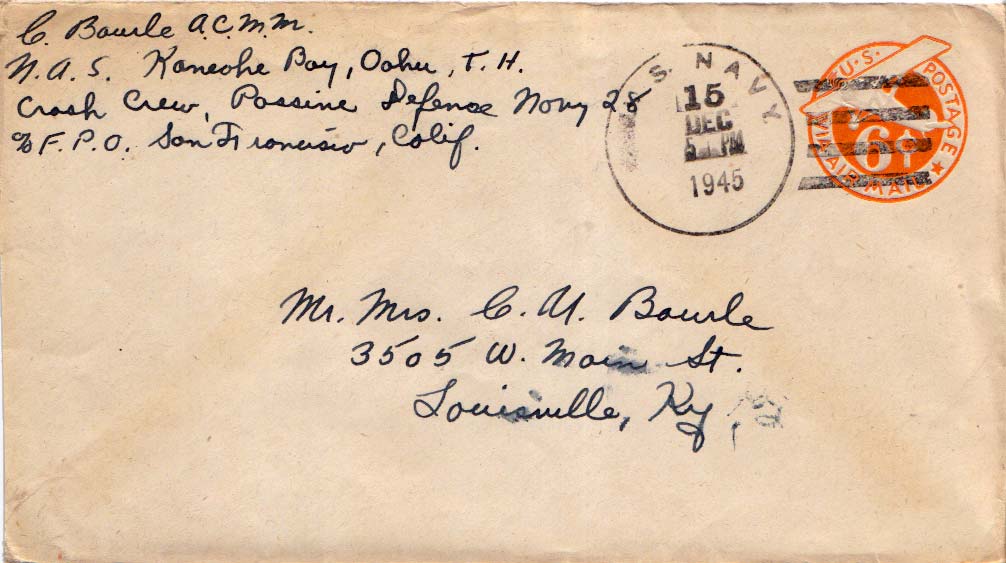 C. Bourle A.C.M.M.
N.A.S. Kaneohe Bay, Oahu, T.H.
Crash Crew, Passive Defense Navy 28
℅ F.P.O. San Francisco, Calif.
U.S. NAVY
15
DEC
5 PM
1945
U.S. POSTAGE
VIA AIR MAIL
6¢
Mr. Mrs. C. U. Bourle
3505 W. Main St.
Louisville, Ky.